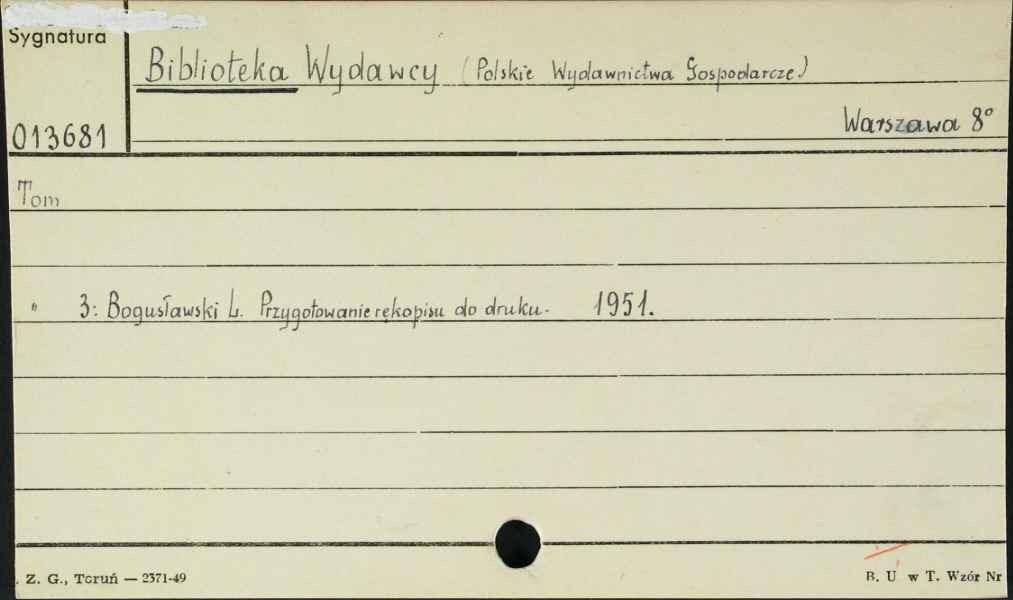 Sygnatura
Biblioteka Wydawcy (Polskie Wydawnictwa Gospodarcze)
013681
Warszawa 8°
Tom
" 3: Bogusławski L. Przygotowanie rękopisu do druku. 1951.
. Z. G., Toruń — 2371-49
B. U w T. Wzór Nr